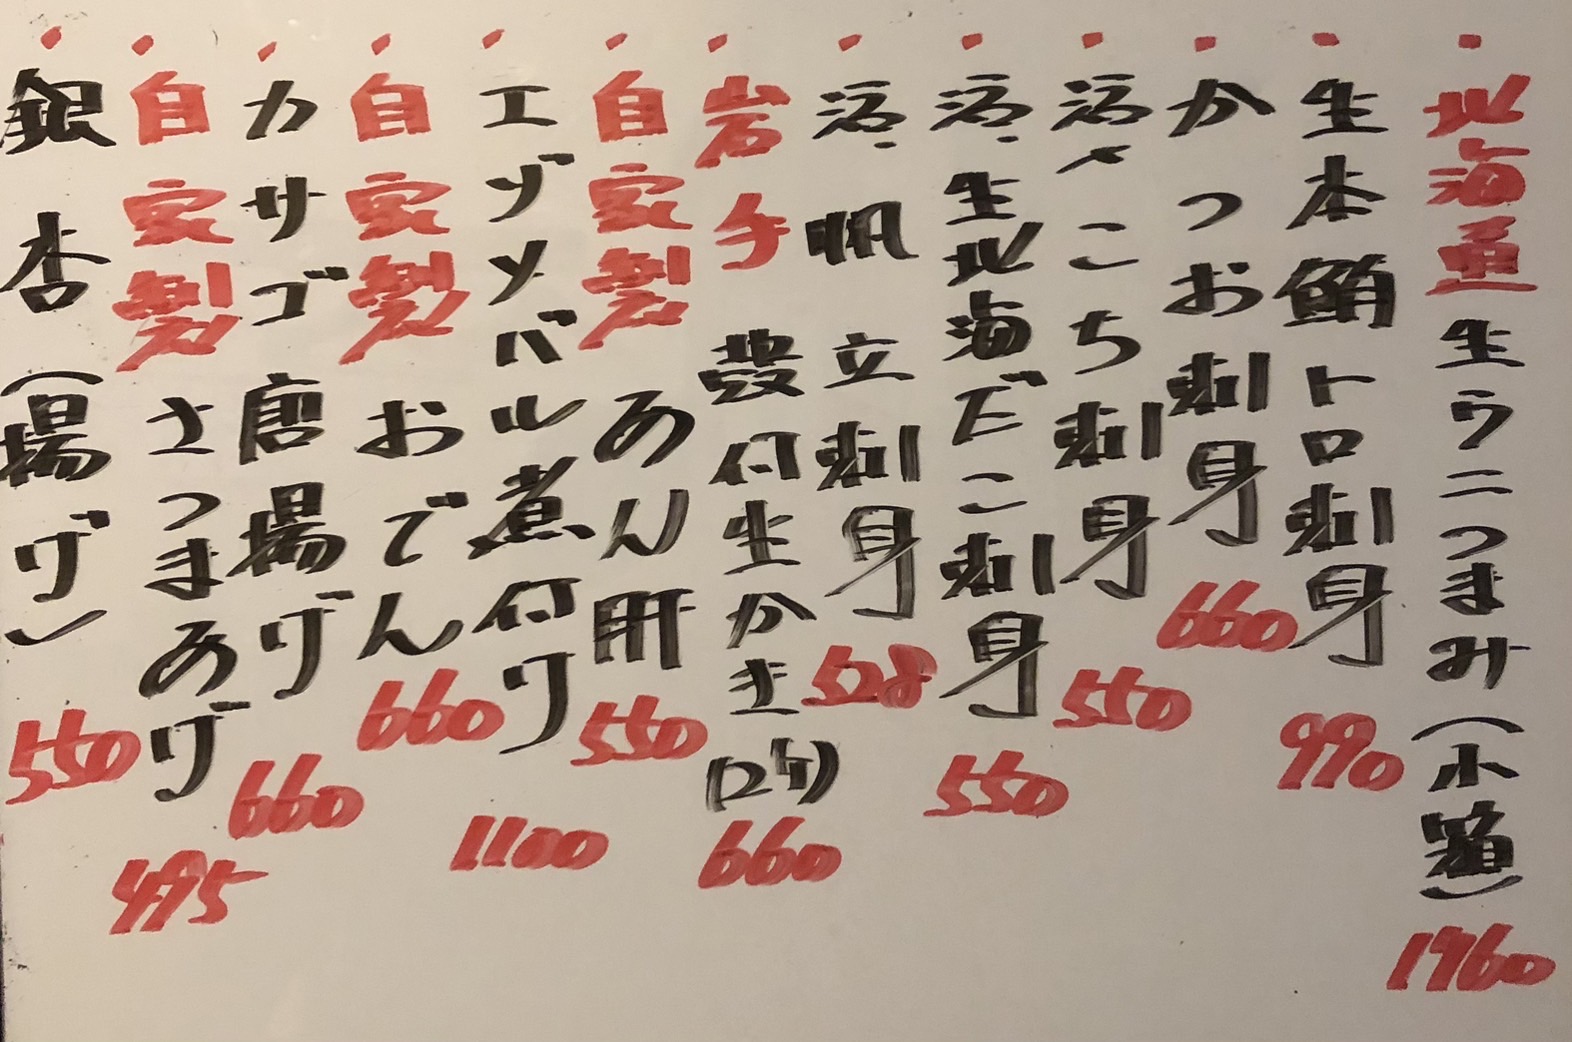 ・北海道生ウニつまみ(小箱) 1960
・生本鮪トロ刺身 990
・かつお刺身 660
・活〆こち刺身 550
・活・生北海だこ刺身 550
・活・帆立刺身 528
・岩手殻付生かき(2ケ) 660
・自家製あん肝 550
・エゾメバル煮付け 1100
・自家製おでん 660
・カサゴ唐揚げ 660
・自家製さつまあげ 495
・銀杏(揚げ) 550